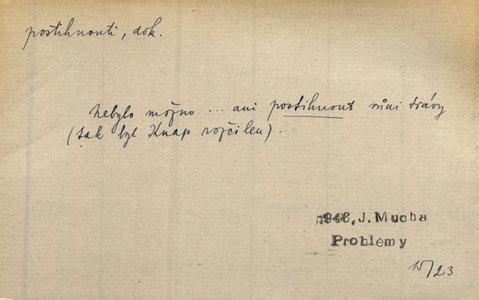 postihnouti, dok.
nebylo možno ... ani postihnout vůni trávy
(tak byl Knap rozčilen) ...
1948, J. Mucha
Problémy
15/23